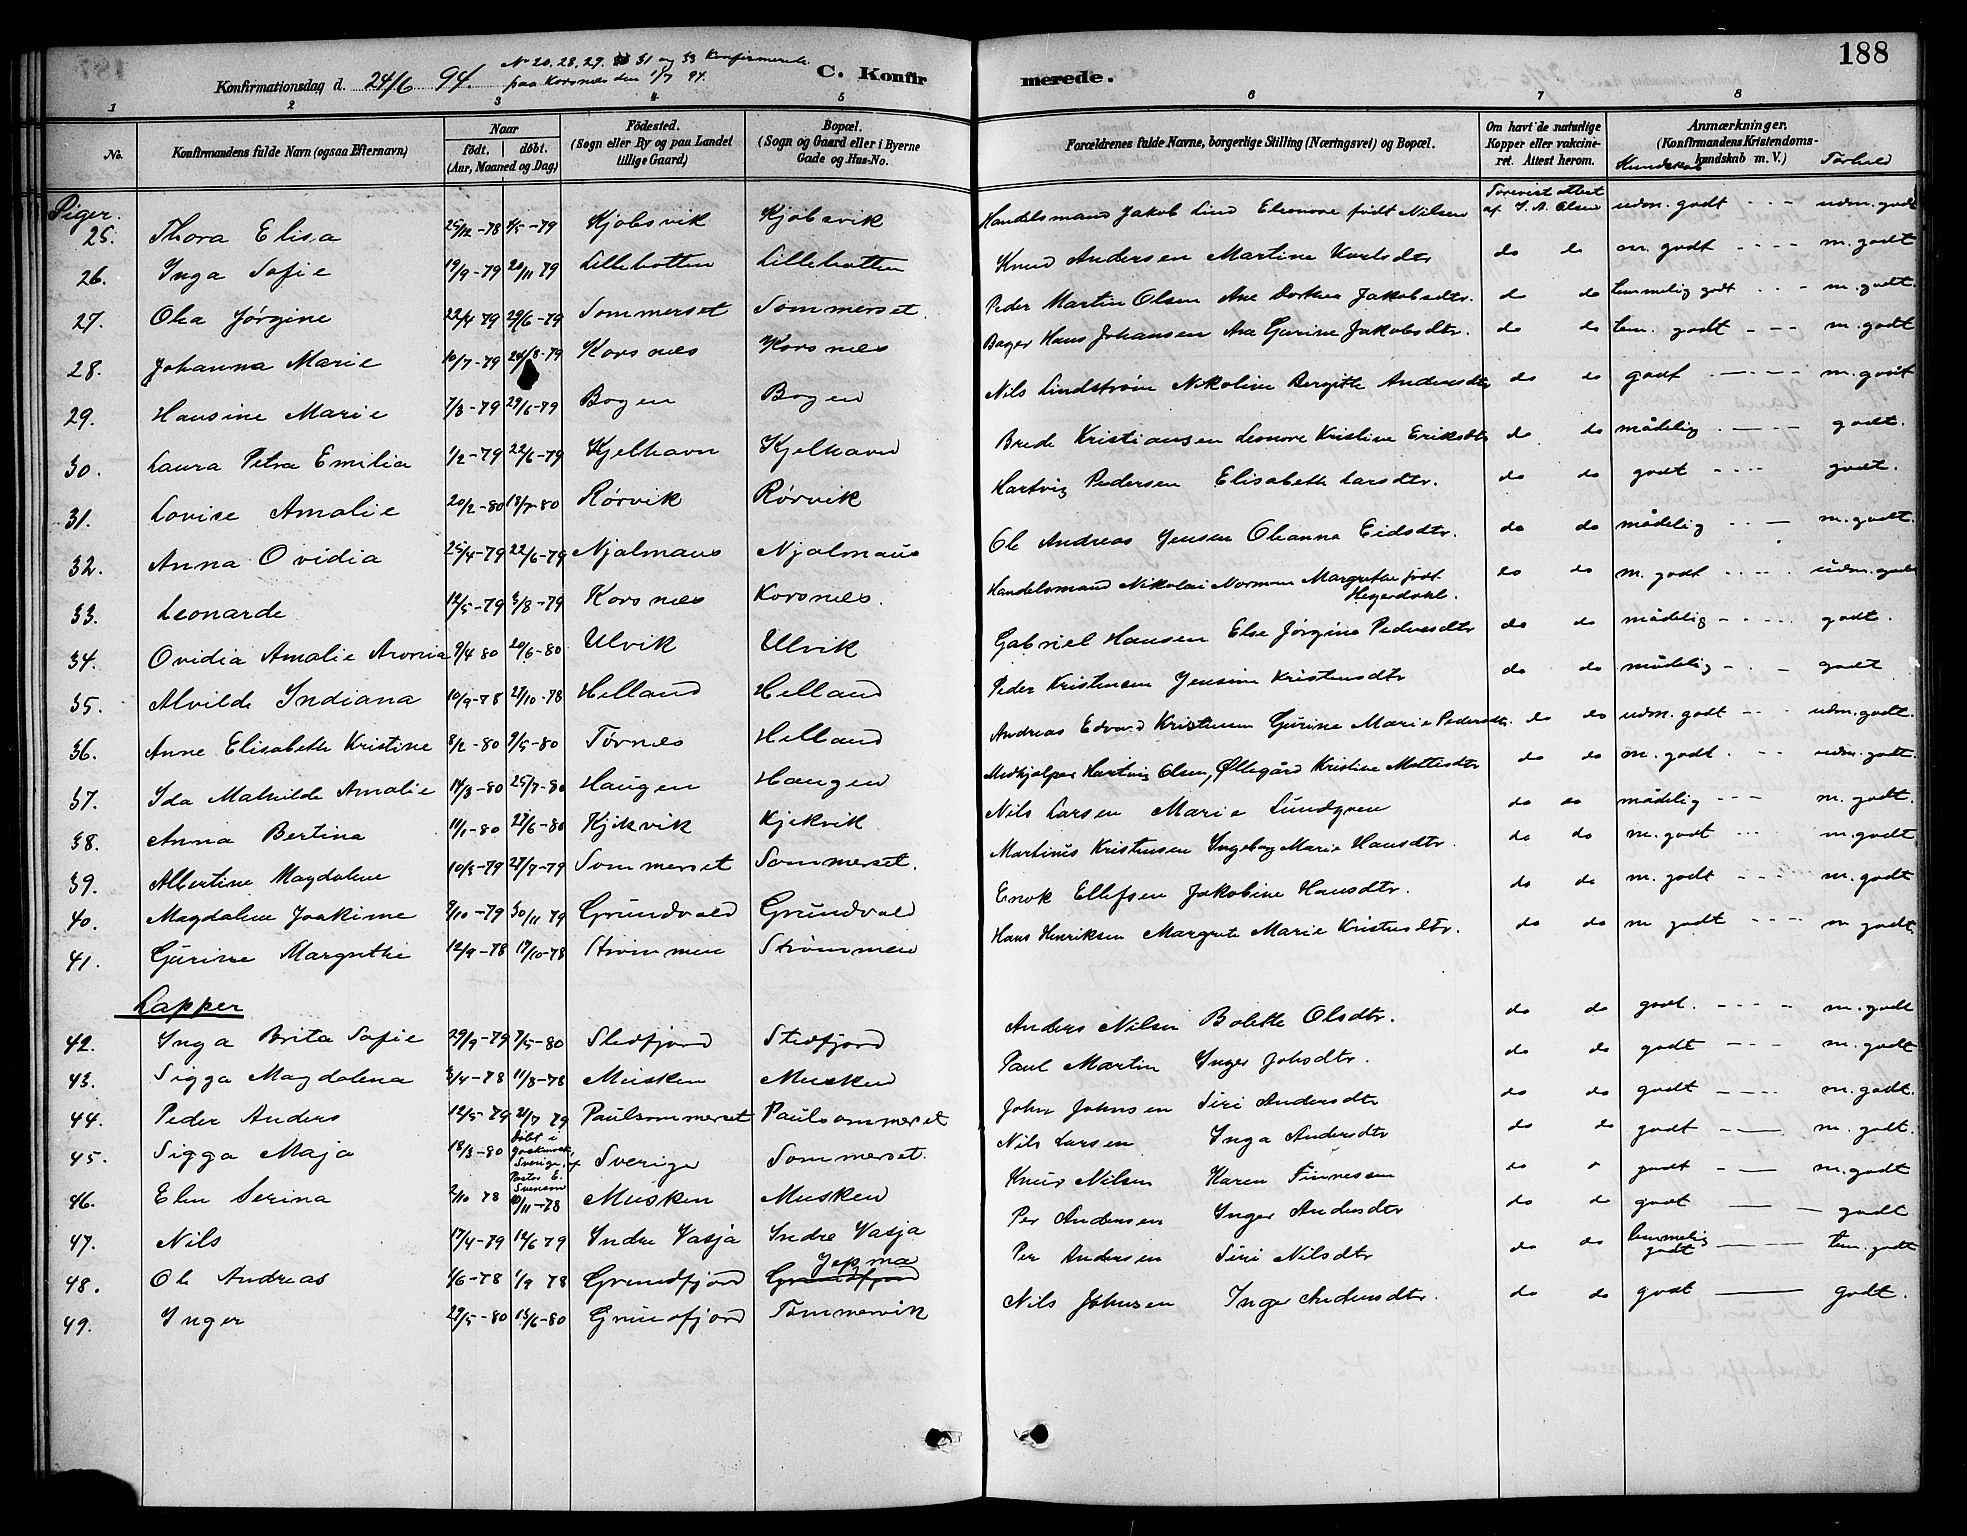 188
Konfirmationsdag d. 24/6 94. No 20. 28. 29. 31 og 33 Konfirmerede
paa Korsnæs den 1/7 94.
C. Konfirmerede.
1 2 3 4 5 6 7 8
No. Konfirmandens fulde Navn (ogsaa Efternavn) Naar födt. döbt. (Aar, Maaned og Dag) Födested. (Sogn eller By og paa Landet tillige Gaard) Bopæl. (Sogn og Gaard eller i Byerne Gade og Hus-No. Forældrenes fulde Navne, borgerlige Stilling (Næringsvei) og Bopæl. Om havt de naturlige Kopper eller vakcineret. Attest herom. Anmærkninger. (Konfirmandens Kristendomskundskab m. V.) Kundskab Forhold
Piger.
25. Thora Elisa 25/12-78 4/5-79 Kjøbsvik Kjøbsvik Handelsmand Jakob Lind Eleonore født Nilsen Forevist attest af J. A. Olsen udm. godt udm. godt
26. Inga Sofie 19/9-79 20/11 79 Lillebotten Lillebotten Knud Andersen Martine Karlsdtr do do m. godt m. godt
27. Olea Jørgine 22/4 79 29/6-79 Sommerset Sommerset. Peder Martin Olsen Ane Dorthea Jakobsdtr. do do temmelig godt m. godt.
28. Johanna Marie 10/7-79 24/8-79 Korsnæs Korsnæs Bager Hans Johansen Ane Gurine Jakobsdtr. do do tem. godt m. godt
29. Hansine Marie 7/3-79 29/6-79 Bogen Bogen Nils Lindstrøm Nikoline Bergitte Andersdtr do do godt m. godt
30. Laura Petra Emilia 1/2-79 22/6-79 Kjelhavn Kjelhavn Brede Kristiansen Leonore Kristine Eriksdtr do do mådelig godt.
31. Lovise Amalie 20/2-80 18/7-80 Rørvik Rørvik Hartvig Pedersen Elisabeth Larsdtr. do do godt godt.
32. Anna Ovidia 25/4-79 22/6-79 Njalmaus Njalmaus Ole Andreas Jensen Oleanna Eidsdtr. do do mådelig m. godt.
33. Leonarde 12/5-79 3/8-79 Korsnæs Korsnæs. Handelsmand Nikolai Norman Margrethe født Hejerdahl. do do m. godt udm. godt
34. Ovidia Amalie Aronia 9/4 80 20/6-80 Ulvik Ulvik Gabriel Hansen Else Jørgine Pedersdtr do do mådelig godt.
35. Alvilde Indiana 10/9-78 27/10-78 Helland Helland Peder Kristensen Jensine Kristensdtr do do mådelig godt
36. Anne Elisabeth Kristine 8/2-80 9/5-80 Tørnæs Helland Andreas Edvard Kristensen Gurine Marie Pedersdtr. do do udm. godt udm. godt.
37. Ida Mathilde Amalie 14/3-80 25/7-80 Haugen Haugen Medhjælper Hartvig Olsen, Øllegård Kristine Mattisdtr do do m. godt. udm. godt.
38. Anna Bertina 11/1-80 27/6-80 Kjikvik Kjekvik Nils Larsen Marie Lundgren do do mådelig m. godt.
39. Albertine Magdalene 10/3-79 27/7-79 Sommerset Sommerset. Martinus Kristensen Ingeborg Marie Hansdtr. do do m. godt m. godt
40. Magdalene Joakime 9/10-79 30/11 79 Grundvald Grundvald Enok Ellefsen Jakobine Hansdtr. do do m. godt m. godt
41. Gurine Margrethe 12/9-78 17/10-78 Strømmen Strømmen Hans Henriksen Margrete Marie Kristensdtr. do do m godt m godt.
Lapper
42. Inga Brita Sofie 29/9-79 7/5-80 Stedfjord Stedfjord Anders Nilsen Bolette Olsdtr. do do godt. m. godt
43. Sigga Magdalena 3/4-78 11/8-78 Musken Musken Paul Martin Inger Johsdtr. do do godt m. godt
44. Peder Anders 12/5-79 21/7 79 Paulsommerset Paulsommerset John Johnsen Siri Andersdtr do do godt m. godt
45. Sigga Maja 18/3-80 døbt i Sverige af Pastor E. Svenson Sverige Sommerset. Nils Larsen Inga Andersdtr do do godt m. godt.
46. Elen Serina 2/10 78 10/11-78 Musken Musken Knud Nilsen Karen Finnesen do do godt m. godt
47. Nils 17/4-79 14/6 79 Indre Vasja Indre Vasja Per Andersen Inger Andersdtr do do godt godt
48. Ole Andreas 4/6-78 1/9 78 Grundfjord Grundfjord Jepma Per Andersen Siri Nilsdtr do do temmelig godt tem. godt
49. Inger 29/5-80 13/6-80 Grundfjord Tømmervik Nils Johnsen Inger Andersdtr. do do godt godt.